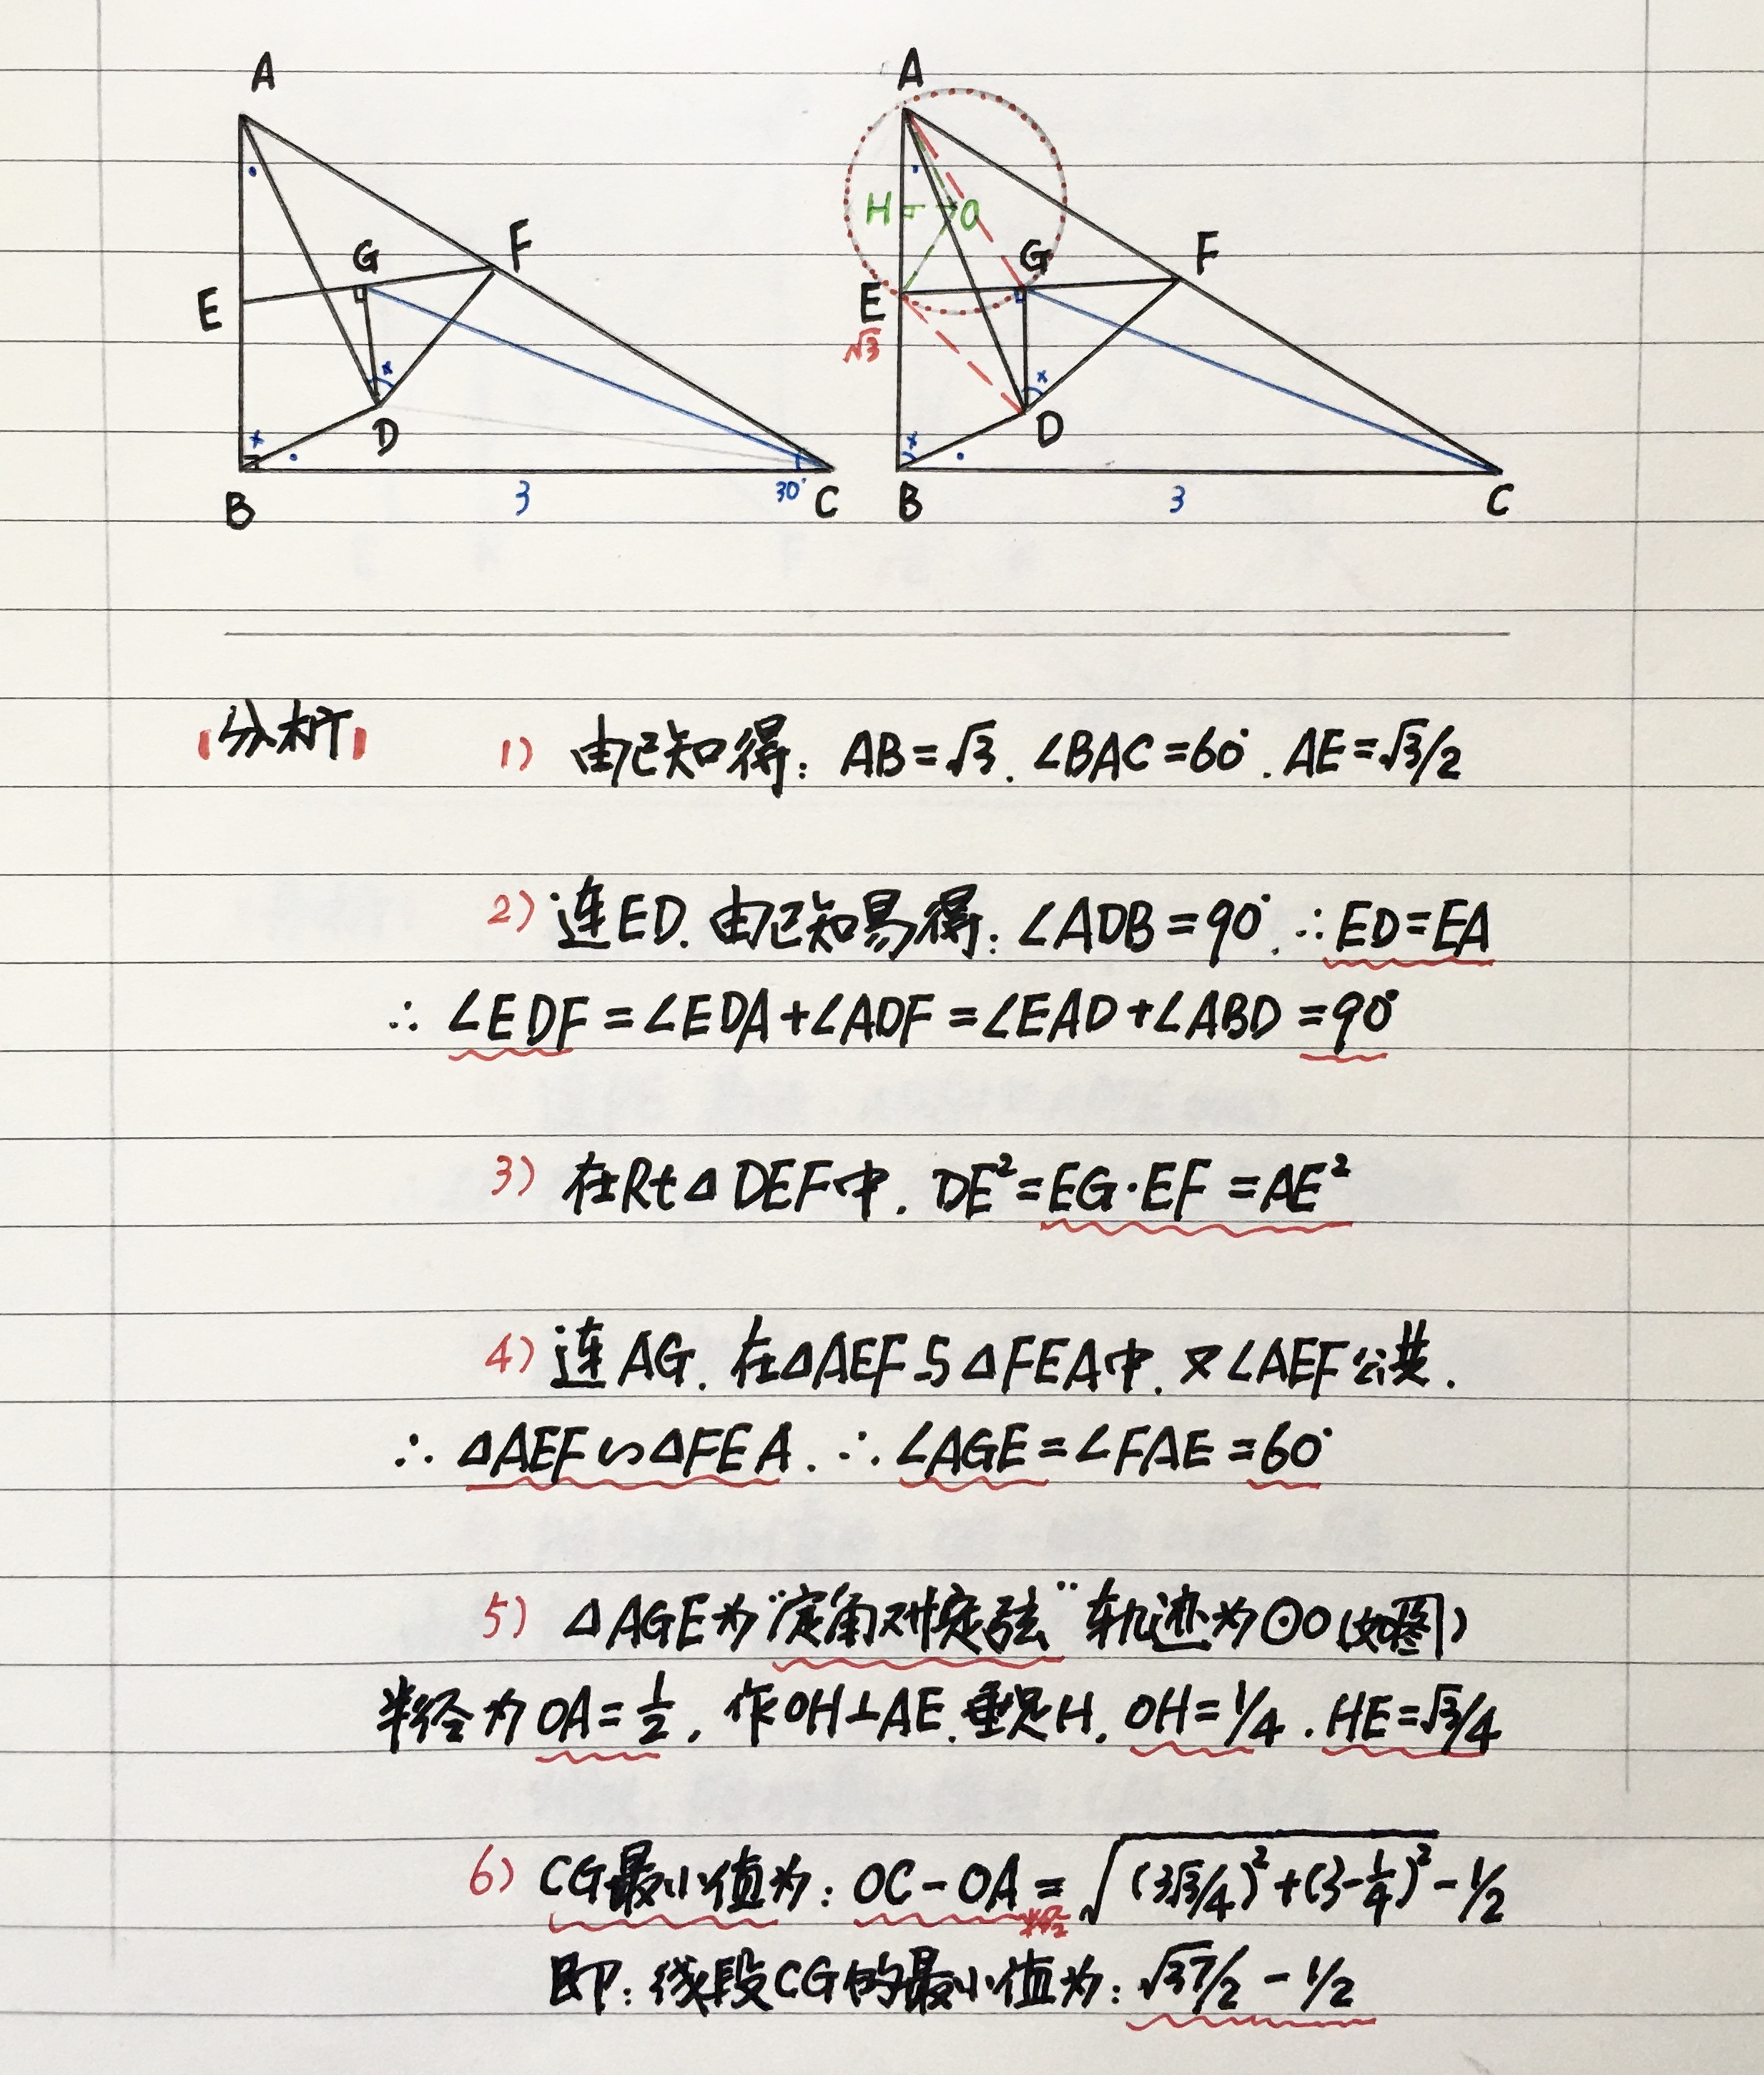 A A
F F
G G
H O
E E
√3
x x
D D
x x
B 3 30° C B 3 C
【分析】 1) 由已知得: AB=√3. ∠BAC=60°. AE=√3/2
2) 连ED. 由已知易得: ∠ADB=90°. ∴ED=EA
∴ ∠EDF=∠EDA+∠ADF=∠EAD+∠ABD=90°
3) 在Rt△DEF中. DE²=EG·EF=AE²
4) 连AG. 在△AEF与△FEA中. 又∠AEF公共.
∴ △AEF∽△FEA. ∴ ∠AGE=∠FAE=60°
5) △AGE为"定角对定弦"轨迹为⊙O(如图)
半径为OA=1/2. 作OH⊥AE.垂足H. OH=1/4. HE=√3/4
6) CG最小值为: OC-OA=√((3√3/4)²+(3-1/4)²)-1/2
半径
即: 线段CG的最小值为: √37/2-1/2